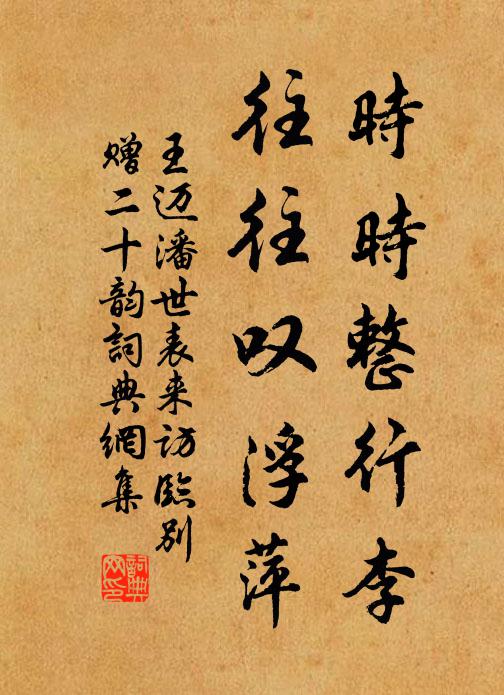 時時整行李
往往叹浮萍
王迈潘世表来访臨别
赠二十韵詞典網集
詞典
网印